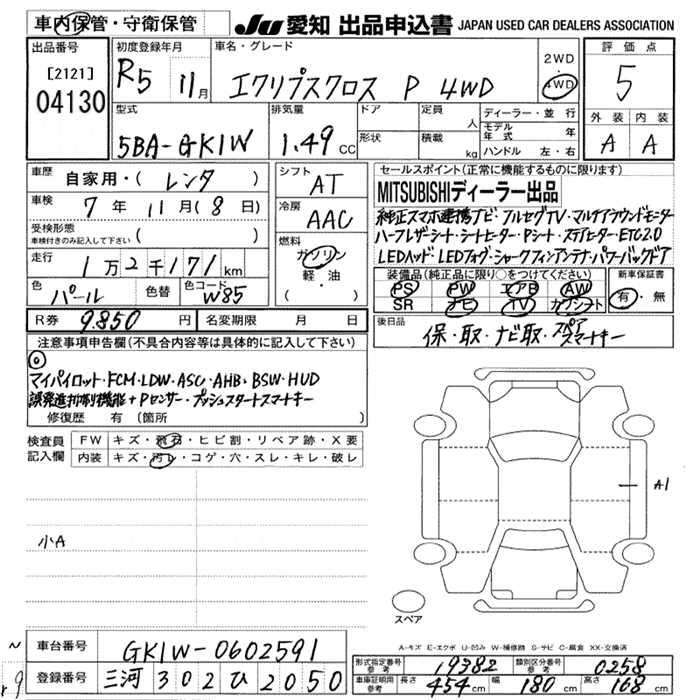 車内保管・守衛保管
JU 愛知 出品申込書 JAPAN USED CAR DEALERS ASSOCIATION
出品番号
[2121]
04130
初度登録年月
R5 11月
車名・グレード
エクリプスクロス P 4WD
2WD
4WD
評価点
5
外装 内装
A A
型式
5BA-GK1W
排気量
1.49 CC
ドア
形状
定員 人
積載 kg
ディーラー・並行
モデル年式 年
ハンドル 左・右
車歴 自家用・( レンタ )
車検 7年 11月 (8日)
受検形態
車検付きのみ記入して下さい ( )
走行 1万2千171km
色 パール 色替 色コード W85
シフト AT
冷房 AAC
燃料
ガソリン
軽・油
( )
セールスポイント(正常に機能するものに限ります)
MITSUBISHIディーラー出品
純正スマホ連携ナビ・フルセグTV・マルチアラウンドモニター
ハーフレザーシート・シートヒーター・Pシート・ステアヒーター・ETC2.0
LEDヘッド・LEDフォグ・シャークフィンアンテナ・パワーバックドア
装備品(純正品に限り○をつけてください)
PS PW エアB AW
SR ナビ TV カワシート
新車保証書
有・無
R券 9.850円 名変期限 月 日
後日品
保・取・ナビ取・スペア スマートキー
注意事項申告欄(不具合内容等は具体的に記入して下さい)
マイパイロット・FCM・LDW・ASC・AHB・BSW・HUD
誤発進抑制機能+Pセンサー・プッシュスタートスマートキー
修復歴 有 (箇所 )
検査員記入欄
FW キズ・飛石・ヒビ割・リペア跡・X要
内装 キズ・汚レ・コゲ・穴・スレ・キレ・破レ
小A
A1
スペア
A-キズ E-エクボ U-凹み W-補修跡 S-サビ C-腐食 XX-交換済
車台番号 GK1W-0602591
登録番号 三河 302 ひ 2050
形式指定番号 参考 19382 類別区分番号 参考 0258
車庫証明用 参考 長さ 454cm 幅 180cm 高さ 168cm